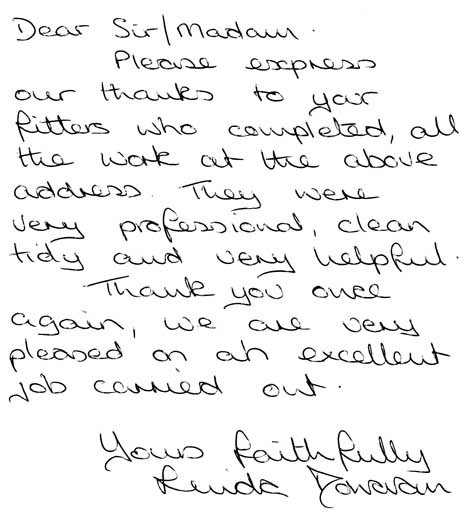 Dear Sir/Madam.
Please express
our thanks to your
fitters who completed, all
the work at the above
address. They were
very professional, clean
tidy and very helpful.
Thank you once
again, we are very
pleased on an excellent
job carried out.
Yours faithfully
Linda